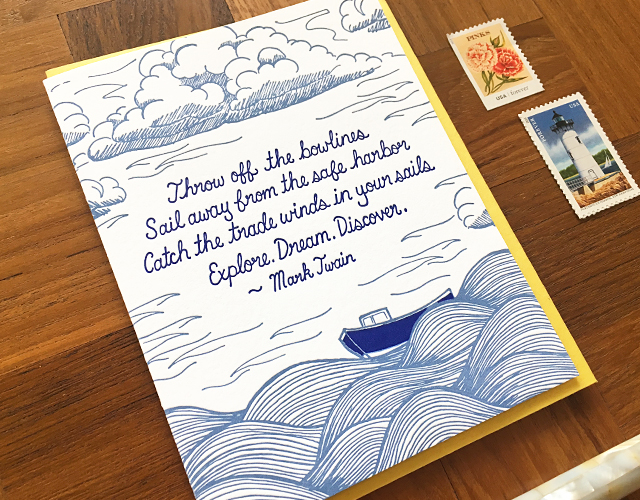 Throw off the bowlines
Sail away from the safe harbor
Catch the trade winds in your sails
Explore. Dream. Discover.
~ Mark Twain
PINKS
USA forever
USA